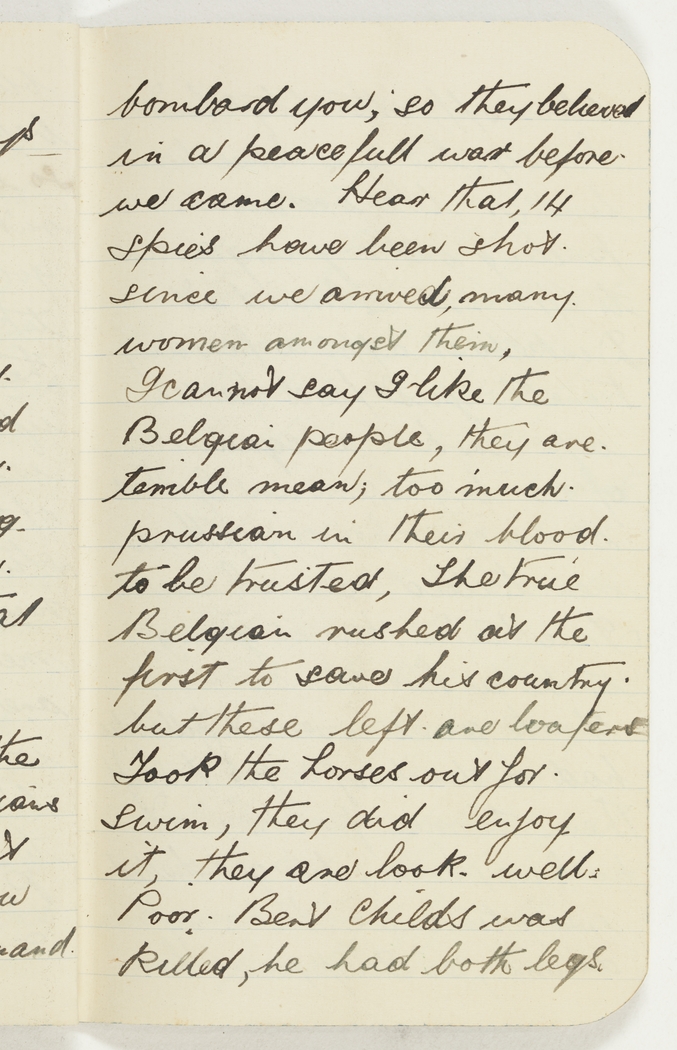 bombard you; so they believed
in a peacefull war before
we came. Hear that, 14
spies have been shot.
since we arrived, many.
women amongst them,
I cannot say I like the
Belgian people, they are.
terrible mean; too much.
prussian in their blood.
to be trusted, The true
Belgian rushed at the
first to save his country.
but these left are loafers
Took the horses out for.
swim, they did enjoy
it, they are look. well.
Poor. Bert Childs was
killed, he had both legs.